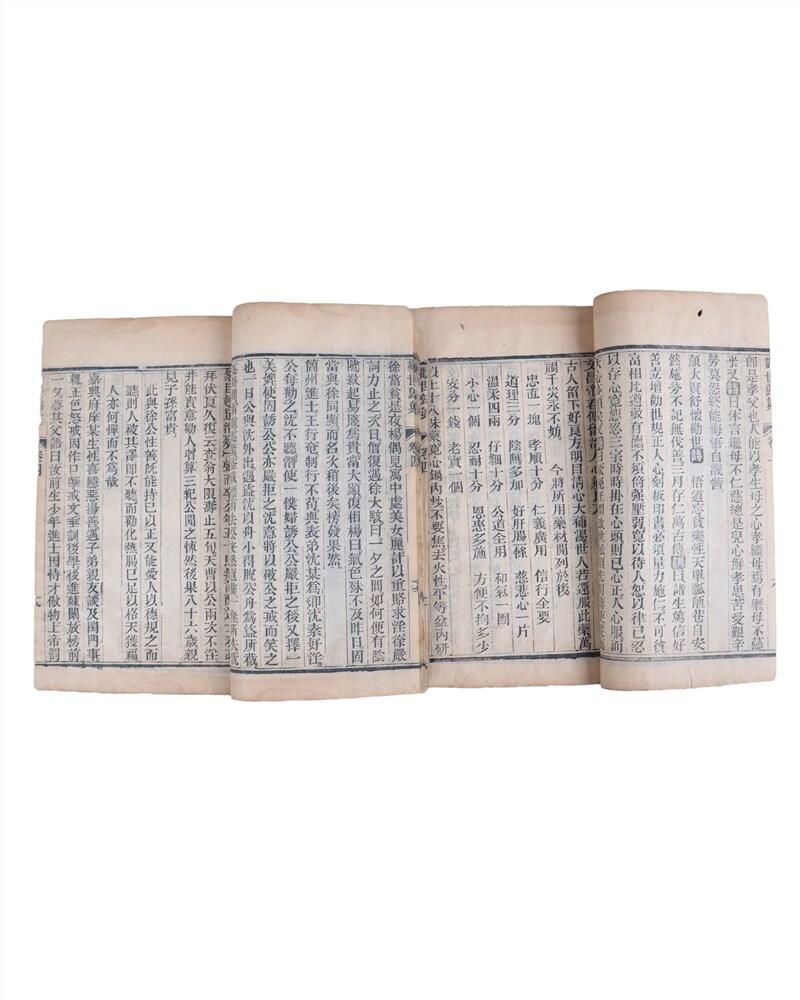 卽是孝父也人能以孝生母之心孝繼母焉有繼母不慈
乎又詩曰休言繼母不仁慈總是兒心鮮孝思苦愛艱辛
勞莫怨終能海悟自
顏大賢舒懷勸世詩 悟道忘貧藥性天單瓢陋巷自安
然施勞不記無伐善三月存仁萬古傳 曰諸生篤信好
善去壇勸世規正人心刻板印書必須量力施仁不可後
富相比道敬有德不須倚强壓弱寬以待人恕以律己忍
以存心寬恕忍三字時時掛在心頭則己心正人心服而
古人留下好良方明目清心大補湯世人若還服此藥萬
禍千災永不妨 今將所用藥材開列於後
忠直一塊 孝順十分 仁義廣用 信行全要
道理三分 陰隲多加 好肚腸一條 慈悲心一片
溫柔四兩 仔細十分 公道全用 和氣一團
小心一個 忍耐十分 恩惠多施 方便不拘多少
安分一錢 老實一個
以上十八味藥寬心鍋內炒不要焦去火性平等盆內研
徐當貧是夜楊偶見寓中處美女麗謂以重賂求淫徐嚴
詞力止之次日僧復遇徐大駭曰一夕之間如何便有陰
隲紋起易賤爲貴當大顯復相楊曰氣色殊不及昨日固
當與徐同顯而名次稍後矣榜發果然
簡州進士王行菴制行不苟與表弟沈某爲鄰沈素好淫
公每勸之沈不聽潛使一僕婦誘公公嚴拒之後又擇一
美婢使固誘公公亦嚴拒之沈意將以破公之戒而笑之
也一日公與沈外出遇盜沈以舟小得脫公舟爲盜所截
拜伏良久復云查翁大限壽止五旬天曹以公兩次不淫
并能直意勸人增算三紀公聞之悚然後果八十六歲親
見子孫富貴
此與徐公性善旣能持已以正又能愛人以德規之而
聽則人被其澤卽不聽而勸化熱腸已足以格天獲福
人亦何憚而不爲哉
嘉興府庠某生性喜隱惡揚善遇子弟親友談及閨門事
輒正色怒戒因作口孽戒文垂訓後學後進棘闈放榜前
一夕夢其父語曰汝前生少年進士因恃才傲物上帝罰